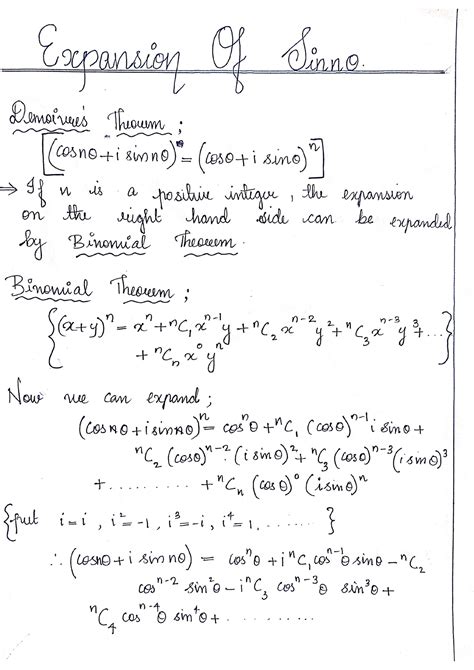 Expansion Of Sinnθ.
Demoivre's Theorem ;
[(cosnθ + i sinnθ) = (cosθ + i sinθ)ⁿ]
⇒ If n is a positive integer, the expansion
on the right hand side can be expanded
by Binomial Theorem.
Binomial Theorem ;
{(x+y)ⁿ = xⁿ + ⁿC₁ xⁿ⁻¹y + ⁿC₂ xⁿ⁻² y² + ⁿC₃ xⁿ⁻³ y³ + ...
+ ⁿCₙ x⁰ yⁿ}
Now we can expand ;
(cosθ + i sinθ)ⁿ = cosⁿθ + ⁿC₁ (cosθ)ⁿ⁻¹ i sinθ +
ⁿC₂ (cosθ)ⁿ⁻² (i sinθ)² + ⁿC₃ (cosθ)ⁿ⁻³ (i sinθ)³
+ .......... + ⁿCₙ (cosθ)⁰ (i sinθ)ⁿ
{put i = i , i² = -1 , i³ = -i, i⁴ = 1, ....... }
∴ (cosnθ + i sin nθ) = cosⁿθ + i ⁿC₁ cosⁿ⁻¹θ sinθ - ⁿC₂
cosⁿ⁻² sin²θ - i ⁿC₃ cosⁿ⁻³θ sin³θ +
ⁿC₄ cosⁿ⁻⁴θ sin⁴θ + ..........